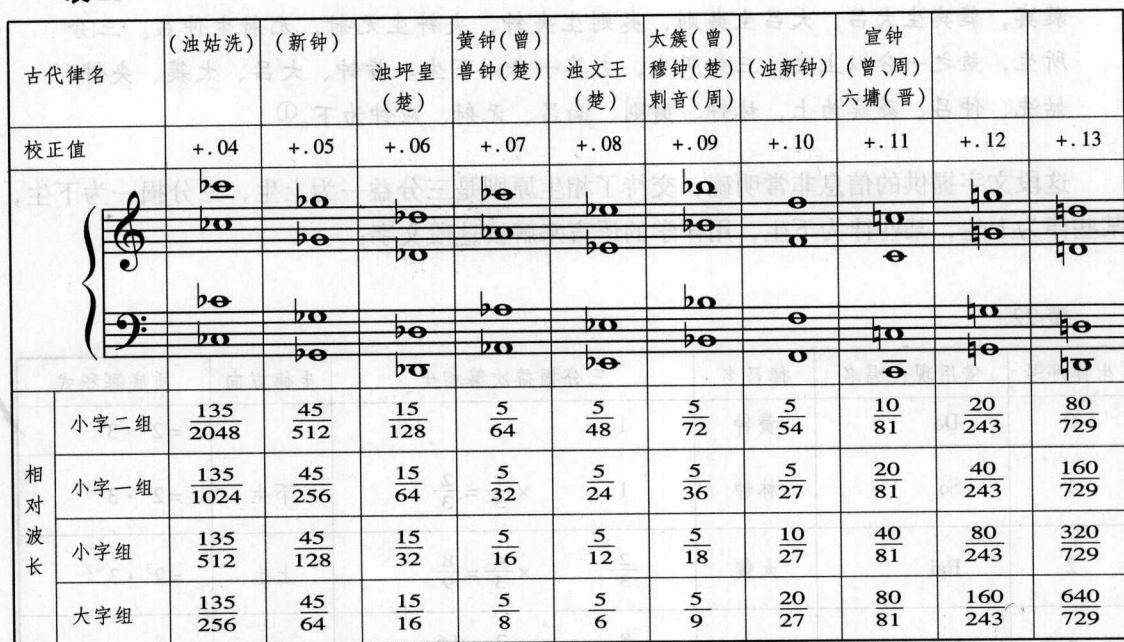 (浊姑洗) (新钟) 黄钟(曾) 太簇(曾) 宣钟
古代律名 浊坪皇 兽钟(楚) 浊文王 穆钟(楚) (浊新钟) (曾、周)
(楚) (楚) 刺音(周) 六墉(晋)
校正值 +.04 +.05 +.06 +.07 +.08 +.09 +.10 +.11 +.12 +.13
相对波长
小字二组 135/2048 45/512 15/128 5/64 5/48 5/72 5/54 10/81 20/243 80/729
小字一组 135/1024 45/256 15/64 5/32 5/24 5/36 5/27 20/81 40/243 160/729
小字组 135/512 45/128 15/32 5/16 5/12 5/18 10/27 40/81 80/243 320/729
大字组 135/256 45/64 15/16 5/8 5/6 5/9 20/27 80/81 160/243 640/729